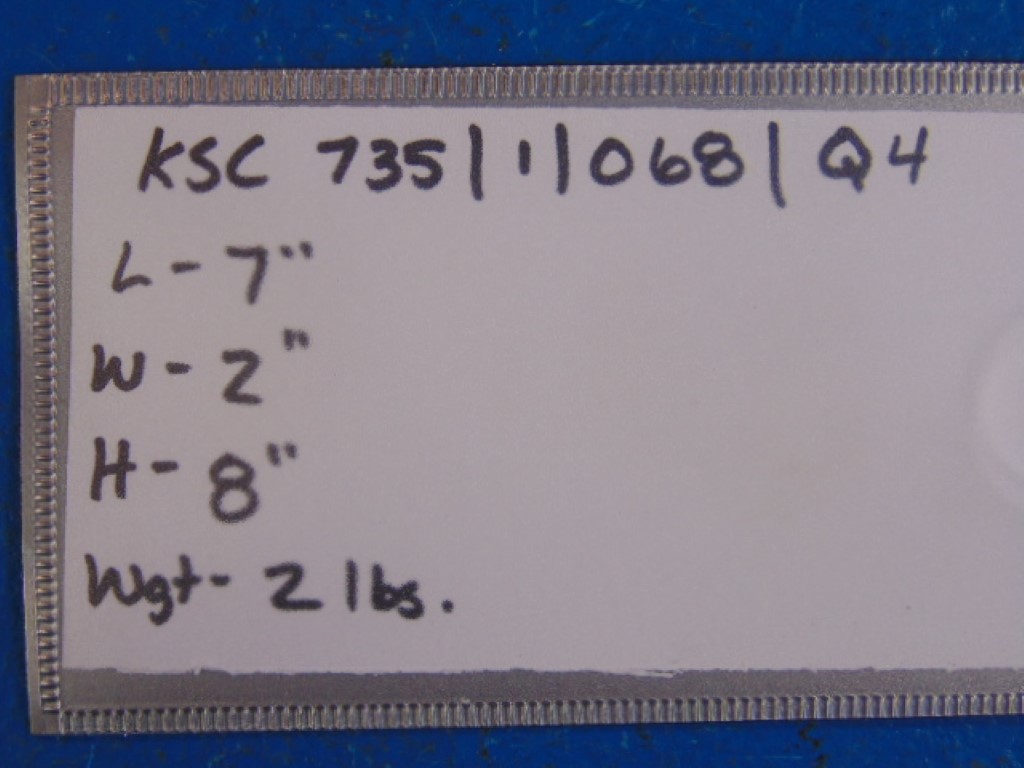 KSC 735|1|068|Q4
L - 7"
W - 2"
H - 8"
Wgt - 2 lbs.